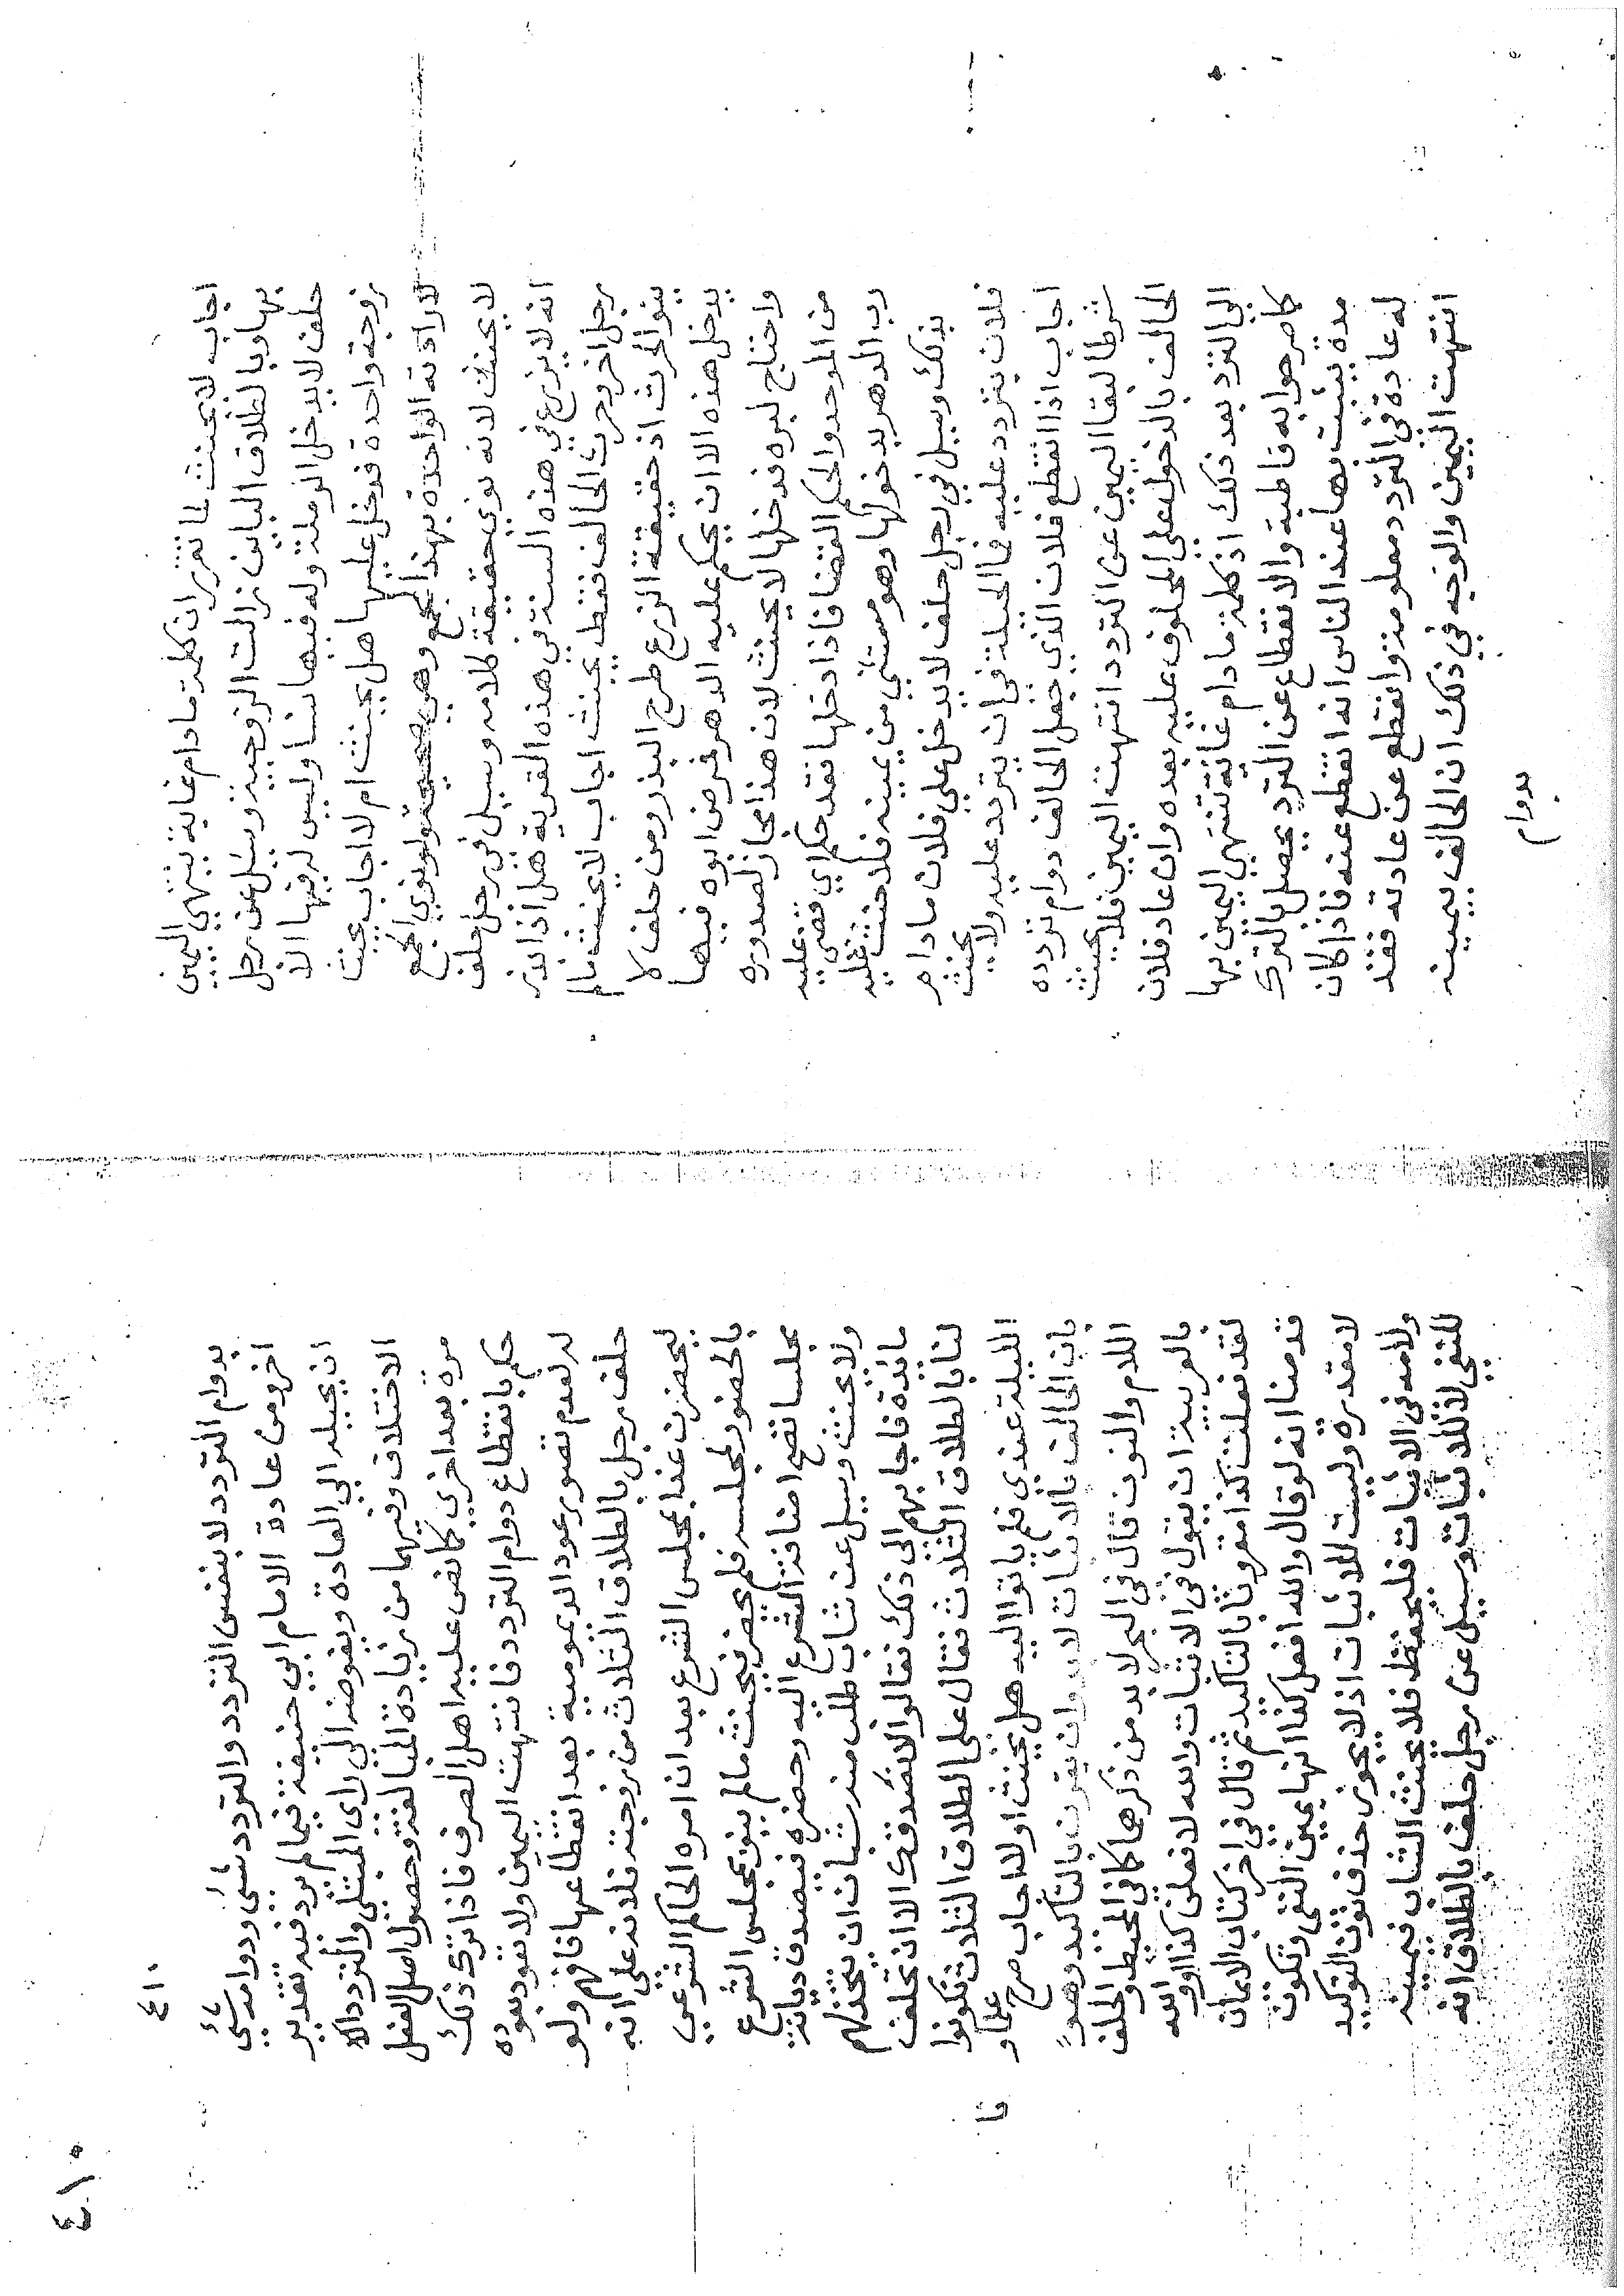 اجاب لا يحنث لما تقرر ان كلمة ما دام غاية تنتهي اليمين
بها وبالطلاق الباين زالت الزوجية وسيل عن رجل
حلف لا يدخل الرملة وله فيها نسا وليس له فيها الا
زوجة واحدة فدخل عليها هل يحنث ام لا اجاب يحنث
لارادته الواحدة بهذا الجمع وهي صحيحة ولو نوي الجمع
لا يحنث لانه نوي حقيقة كلامه وسيل في رجل حلف
انه لا يزرع في هذه السنة في هذه القرية هل اذا بذر
رجل اخر وحرث الحالف فقط يحنث اجاب لا يحنث ما لم
ينو الحرث اذ حقيقة الزرع طرح البذر ومن حلف لا
يدخل هذه الا ان يحكم عليه الدهر فمرض ابوه فيها
واحتاج لبره فدخلها لا يحنث لان هذا مجاز لصدوره
من الموحد والحكم القضا فاذا دخلها فقد حكم اي قضي عليه
رب الدهر بدخولها وهو مستثني من يمينه فلا حنث عليه
بذلك وسيل في رجل حلف لا يدخل علي فلان ما دام
فلان يتردد عليه فما الحيلة في ان يتردد عليه ولا يحنث
اجاب اذا انقطع فلان الذي جعل الحالف دوام تردده
شرطا لبقا اليمين عن التردد انتهت اليمين فلا يحنث
الحالف بالدخول علي المحلوف عليه بعده وان عاد فلان
الي التردد بعد ذلك اذ كلمة ما دام غاية تنتهي اليمين بها
كما صرحوا به قاطبة والانقطاع عن التردد يحصل بالترك
مدة يثبت بها عند الناس انه انقطع عنه فاذا كان
له عادة في التردد معلومة وانقطع عن عادته فقد
انتهت اليمين والوجه في ذلك ان الحالف بيمينه
بدوام
٤١٠
٤١٠
بدوام التردد لا بنفس التردد والتردد شيء ودوامه شيء
اخر ومن عادة الامام ابي حنيفة فيما لم يرد فيه تقدير
ان يحيله الي العادة ويفوضه الي راي المبتلي والترداد
الاختلاف وفيهما من زيادة المبالغة وحصول اصل الفعل
مرة بعد اخري كما نص عليه اهل الصرف فاذا ترك ذلك
حكم بانقطاع دوام التردد فانتهت اليمين ولا تعود بعوده
له لعدم تصور عود الديمومية بعد انقطاعها فافهم ولو
حلف رجل بالطلاق الثلاث من زوجته فلانه علي انه
ليحضرن غدا مجلس الشرع بعد ان امره الحاكم الشرعي
بالحضور لمجلسه فلم يحضر فيحنث ما لم ينو بمجلس الشرع
مجلسا تصح اضافة الشرع اليه وحضره فيصدق ديانة
ولا يحنث وسيل عن شاب طلب منه شبان ان يتخذ لهم
مائدة فاجابهم الي ذلك فقالوا لا نصدقك الا ان تحلف
لنا بالطلاق الثلاث فقال علي الطلاق الثلاث تكونوا
الليلة عندي فلم ياتوا اليه هل يحنث اولا اجاب صرح علماونا
بان الحالف بالاثبات لا بد وان يقرن بالتأكيد وهو
اللام والنون قال في البحر لا بد من ذكرهما كما في المحيط والحلف
بالعربية ان يقول في الاثبات والله لا فعلن كذا او والله
لقد فعلت كذا مقرونا بالتاكيد ثم قال في اخر كتاب الايمان
قدمنا انه لو قال والله افعل كذا انها يمين النفي وتكون
لا مقدرة وليست للاثبات اذ لا يجوز حذف نون التوكيد
ولامه في الاثبات فليحفظ فلا يحنث الشاب فيمينه
للنفي لا للاثبات وسيل عن رجل حلف بالطلاق انه